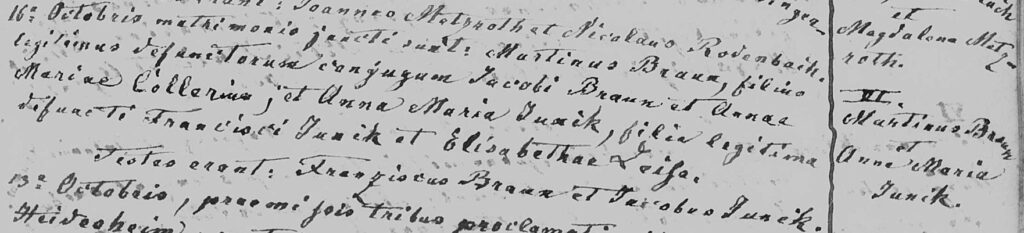 erant: Joannes Metzroth et Nicolaus Rodenbach.
16ª Octobris matrimonio juncti sunt: Martinus Braun, filius
legitimus defunctorum conjugum Jacobi Braun et Annae
Mariae Collerius, et Anna Maria Junik, filia legitima
defuncti Francisci Junik et Elisabethae Leisa.
Testes erant: Franziscus Braun et Jacobus Junik.
13ª Octobris, praemissis tribus proclamati
Heidesheim
et
Magdalena Metz-
roth.
VI.
Martinus Braun
et
Anna Maria
Junik.